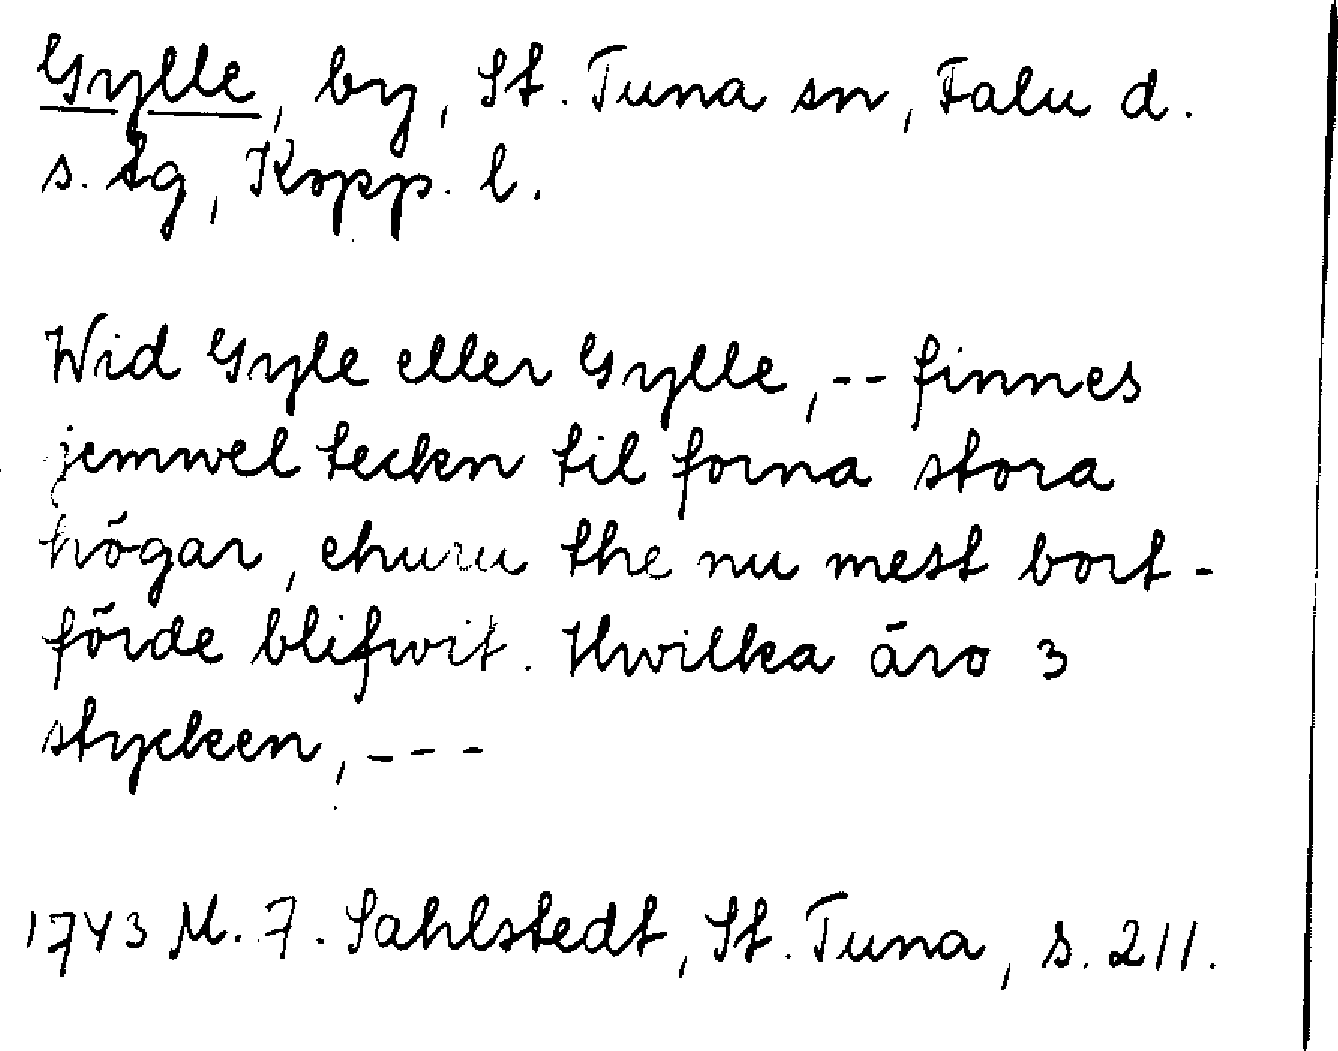 Gylle, by, St. Tuna sn, Falu d.
s. tg, Kopp. l.
Wid Gyle eller Gylle, -- finnes
jemwel teckn til forna stora
högar, ehuru the nu mest bort-
förde blifwit. Hwilka äro 3
stycken, ---
1743 M. F. Sahlstedt, St. Tuna, s. 211.